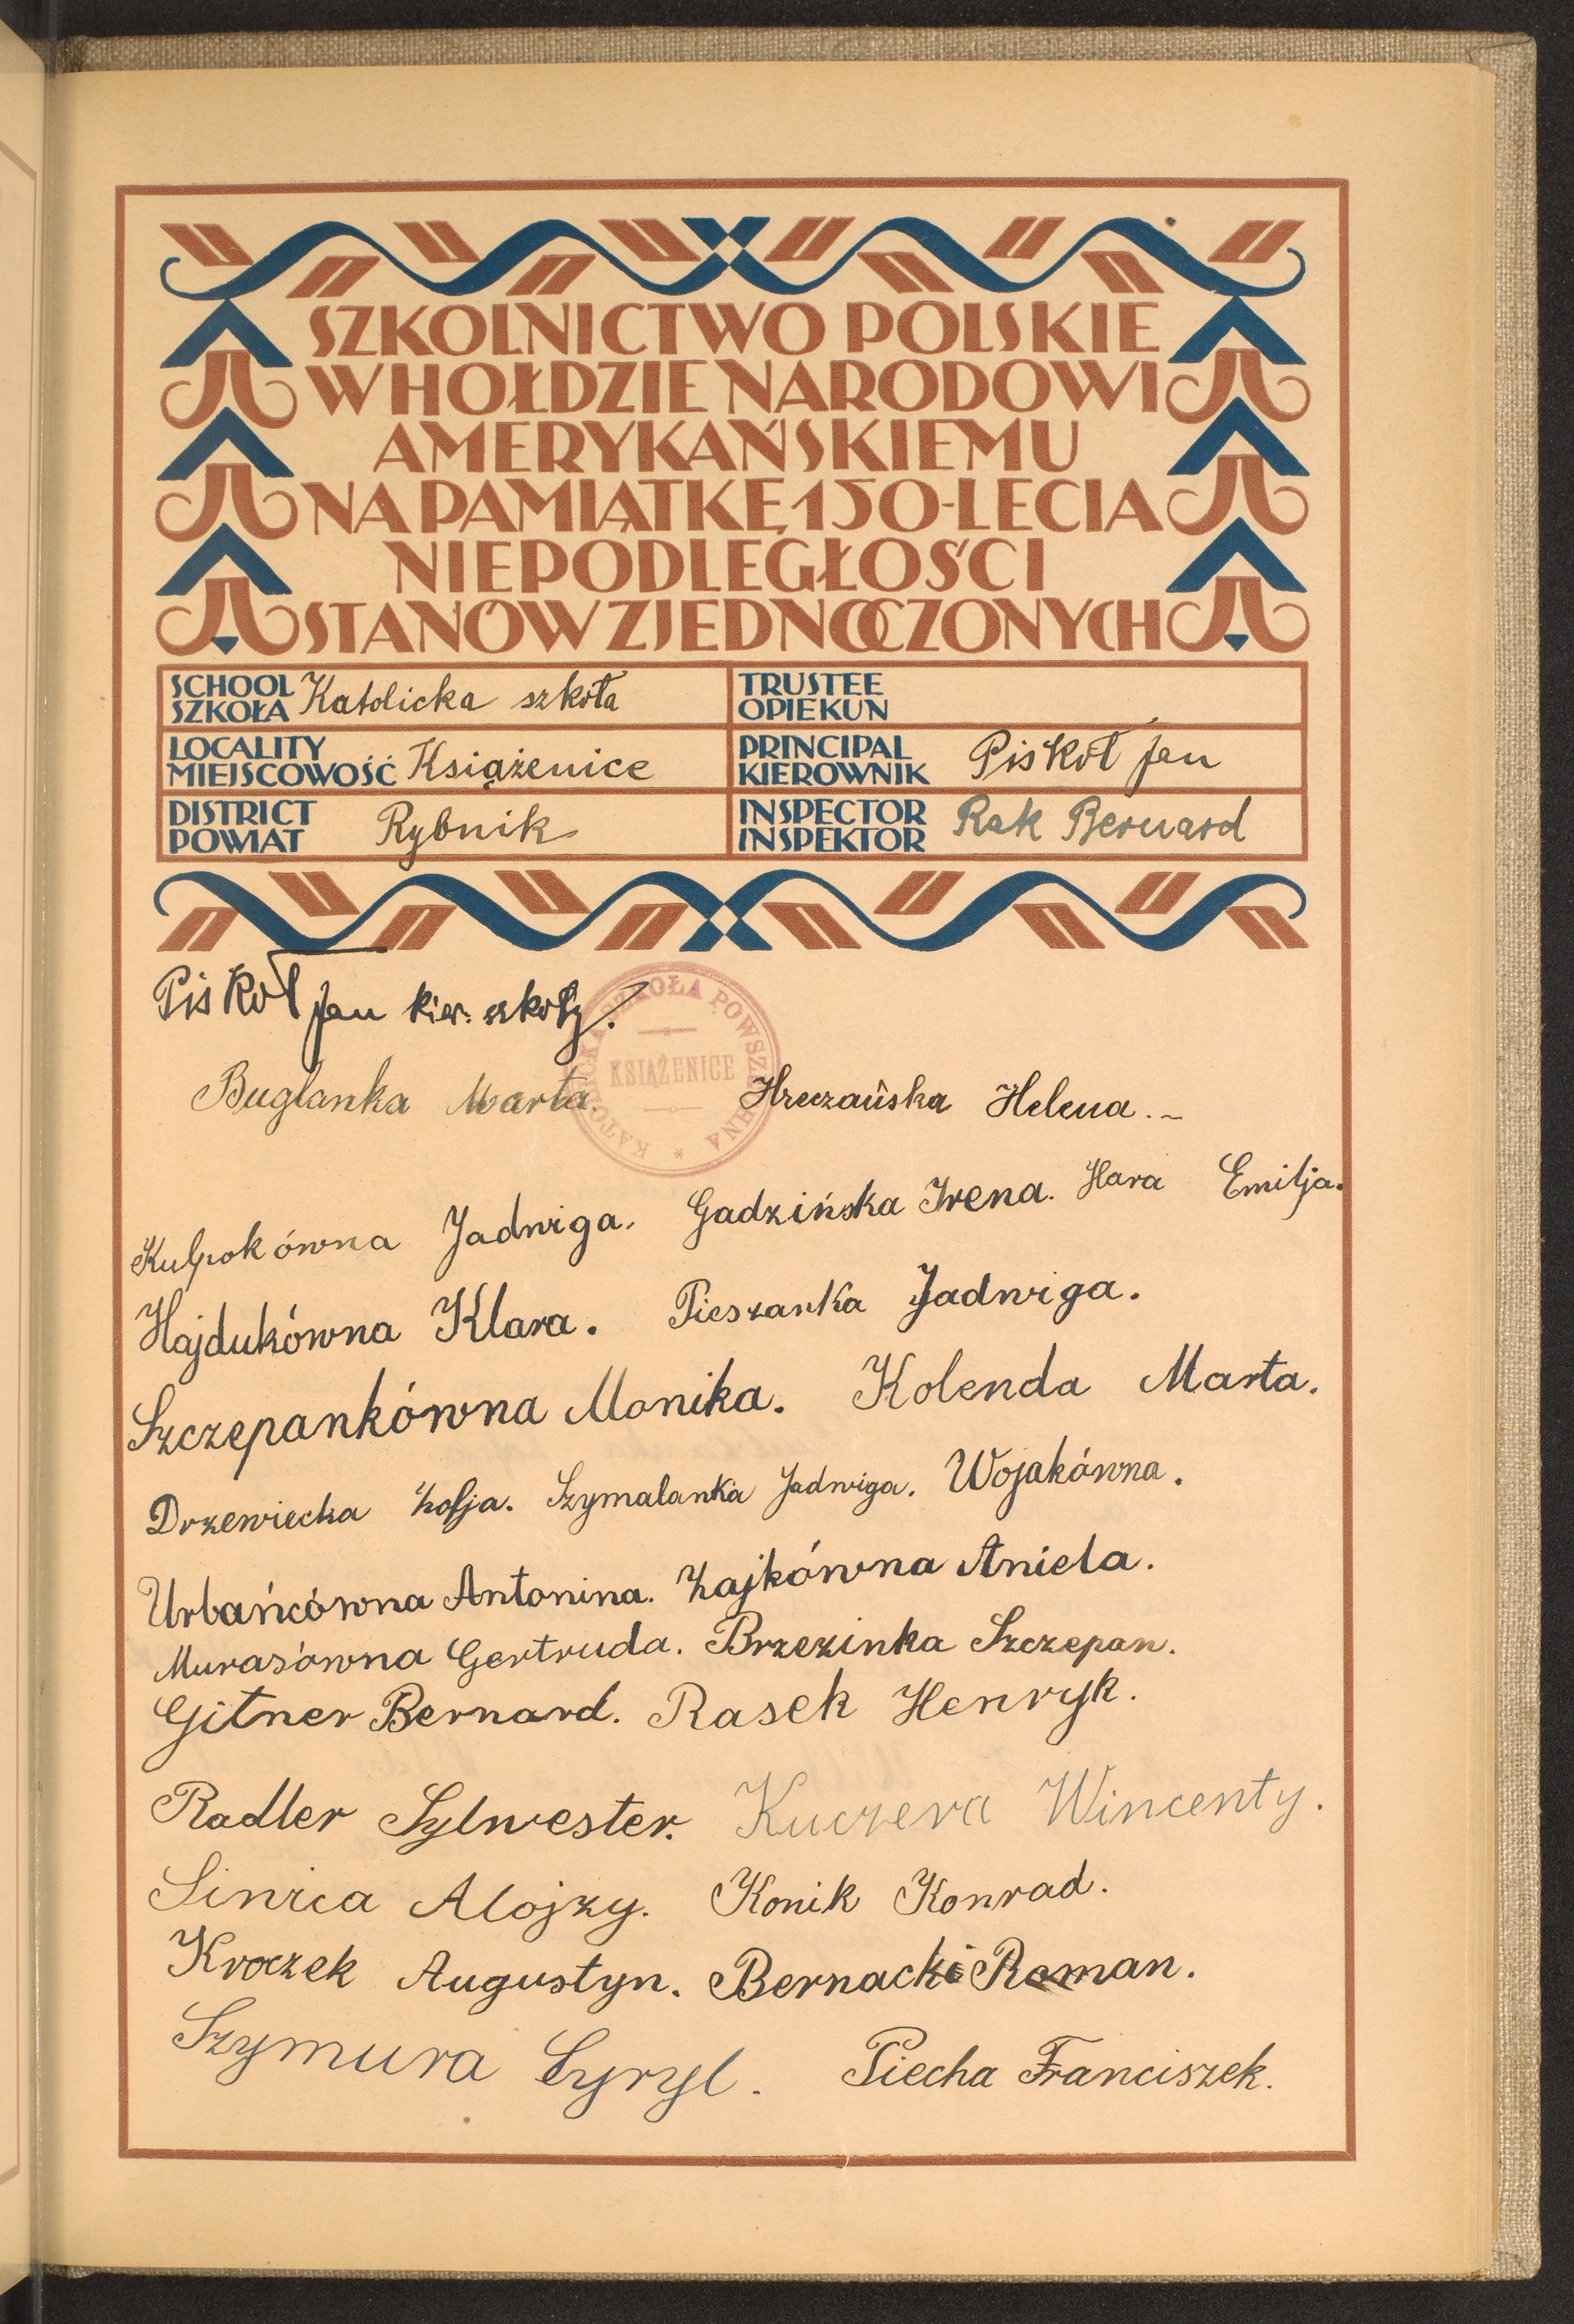 SZKOLNICTWO POLSKIE
W HOŁDZIE NARODOWI
AMERYKAŃSKIEMU
NA PAMIĄTKĘ 150-LECIA
NIEPODLEGŁOŚCI
STANÓW ZJEDNOCZONYCH
SCHOOL SZKOŁA Katolicka szkoła
TRUSTEE OPIEKUN
LOCALITY MIEJSCOWOŚĆ Książenice
PRINCIPAL KIEROWNIK Piskoł Jan
DISTRICT POWIAT Rybnik
INSPECTOR INSPEKTOR Rak Bernard
Piskoł Jan kier. szkoły.
KATOLICKA SZKOŁA POWSZECHNA * KSIĄŻENICE
Buglanka Marta. Hreczańska Helena.~
Kulpokówna Jadwiga. Gadzińska Irena. Hara Emilja.
Hajdukówna Klara. Pieszanka Jadwiga.
Szczepankówna Monika. Kolenda Marta.
Drzewiecka Zofja. Szymalanka Jadwiga. Wojakówna.
Urbańcówna Antonina. Zajkówna Aniela.
Murasówna Gertruda. Brzezinka Szczepan.
Gitner Bernard. Rasek Henryk.
Radler Sylwester. Kuczera Wincenty.
Sinica Alojzy. Konik Konrad.
Kroczek Augustyn. Bernacki Roman.
Szymura Cyryl. Piecha Franciszek.